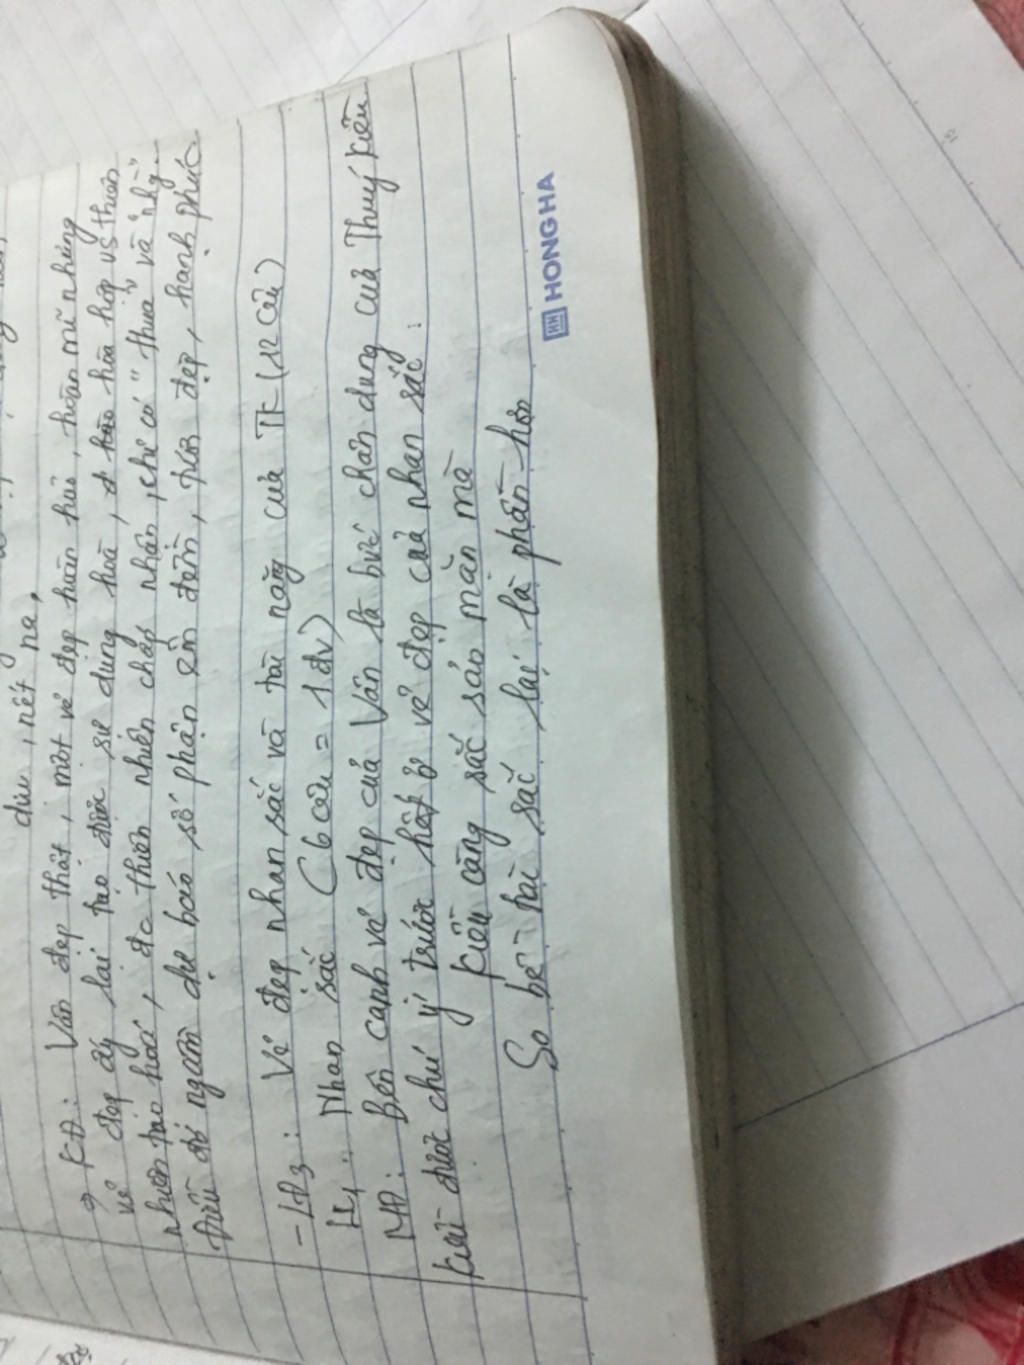 dịu, nết na,
→ KĐ: Vân đẹp thật, một vẻ đẹp thuần hậu, hoàn mĩ nhưng
vẻ đẹp ấy lại tạo được sự dung hoà, hoà hợp vs thiên
nhiên tạo hoá, đc thiên nhiên chấp nhận, chỉ có "thua" và "nhg".
Điều đó ngầm dự báo số phận êm đềm, tốt đẹp, hạnh phúc
- LĐ3: Vẻ đẹp nhan sắc và tài năng của TK (12 câu)
LL1: Nhan sắc (6 câu = 1 đv)
MĐ: Bên cạnh vẻ đẹp của Vân là bức chân dung của Thuý Kiều
Kiều được chú ý trước hết ở vẻ đẹp của nhan sắc:
Kiều càng sắc sảo mặn mà
So bề tài sắc lại là phần hơn
HH HONG HA